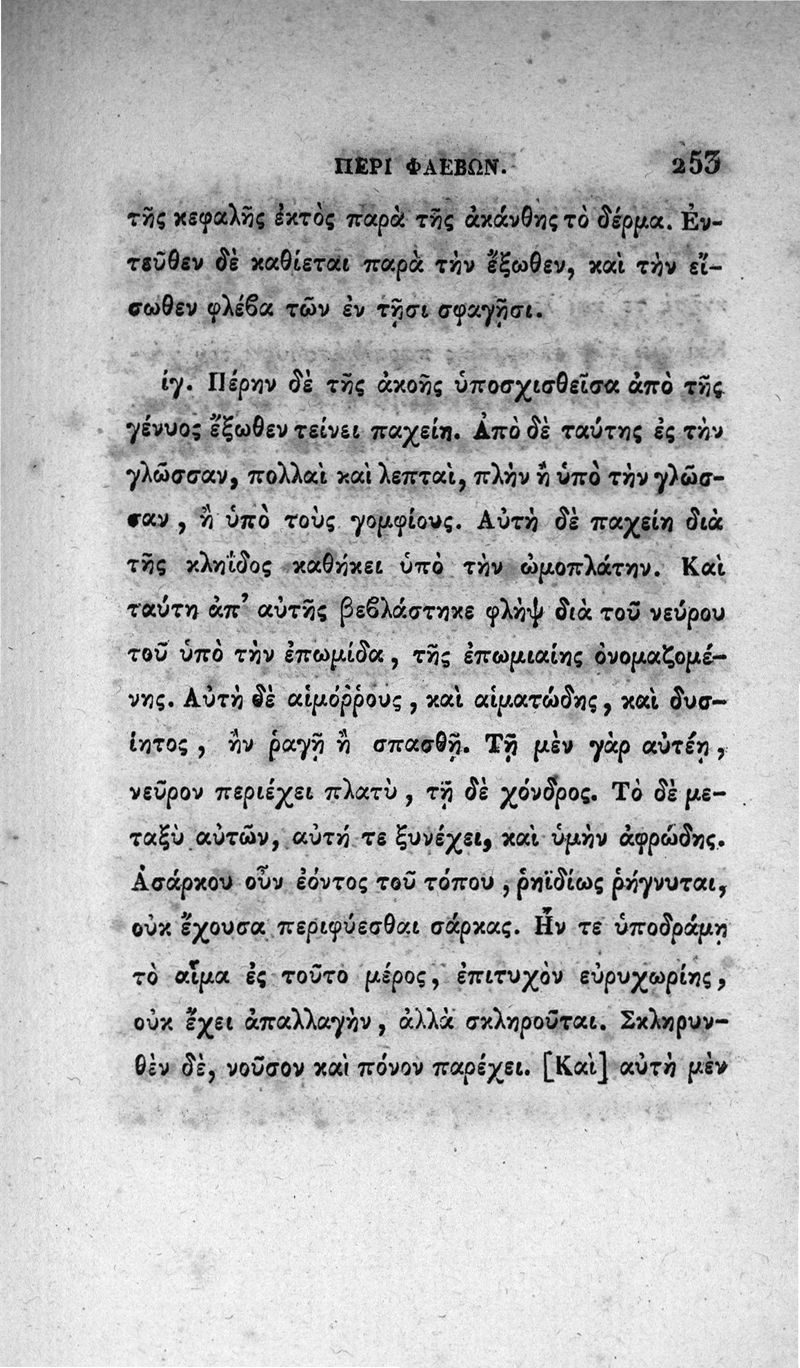 ΠΕΡΙ ΦΛΕΒΩΝ. 253
τῆς κεφαλῆς ἐκτὸς παρὰ τῆς ἀκάνθης τὸ δέρμα. Ἐν-
τεῦθεν δὲ καθίεται παρὰ τὴν ἔξωθεν, καὶ τὴν εἴ-
σωθεν φλέϐα τῶν ἐν τῇσι σφαγῇσι.
ίγ. Πέρην δὲ τῆς ἀκοῆς ὑποσχισθεῖσα ἀπὸ τῆς
γένυος ἔξωθεν τείνει παχείη. Ἀπὸ δὲ ταύτης ἐς τὴν
γλῶσσαν, πολλαὶ καὶ λεπταὶ, πλὴν ἢ ὑπὸ τὴν γλῶσ-
σαν, ἢ ὑπὸ τοὺς γομφίους. Αὐτὴ δὲ παχείη διὰ
τῆς κληΐδος καθήκει ὑπὸ τὴν ὠμοπλάτην. Καὶ
ταύτη ἀπ’ αὐτῆς βεϐλάστηκε φλὴψ διὰ τοῦ νεύρου
τοῦ ὑπὸ τὴν ἐπωμίδα, τῆς ἐπωμιαίης ὀνομαζομέ-
νης. Αὐτὴ δὲ αἱμόῤῥους, καὶ αἱματώδης, καὶ δυσ-
ίητος, ἢν ῥαγῇ ἢ σπασθῇ. Τῇ μὲν γὰρ αὐτέῃ,
νεῦρον περιέχει πλατὺ, τῇ δὲ χόνδρος. Τὸ δὲ με-
ταξὺ αὐτῶν, αὐτή τε ξυνέχει, καὶ ὑμὴν ἀφρώδης.
Ἀσάρκου οὖν ἐόντος τοῦ τόπου, ῥηϊδίως ῥήγνυται,
οὐκ ἔχουσα περιφύεσθαι σάρκας. Ἢν τε ὑποδράμῃ
τὸ αἷμα ἐς τοῦτο μέρος, ἐπιτυχὸν εὐρυχωρίης,
οὐκ ἔχει ἀπαλλαγὴν, ἀλλὰ σκληροῦται. Σκληρυν-
θὲν δὲ, νοῦσον καὶ πόνον παρέχει. [Καὶ] αὐτὴ μὲν